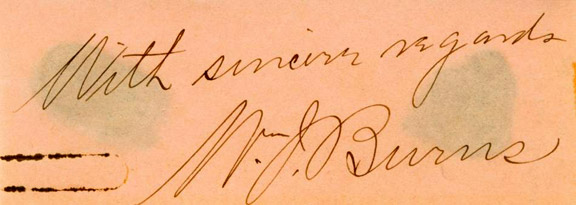 With sincere regards
Wm. J. Burns